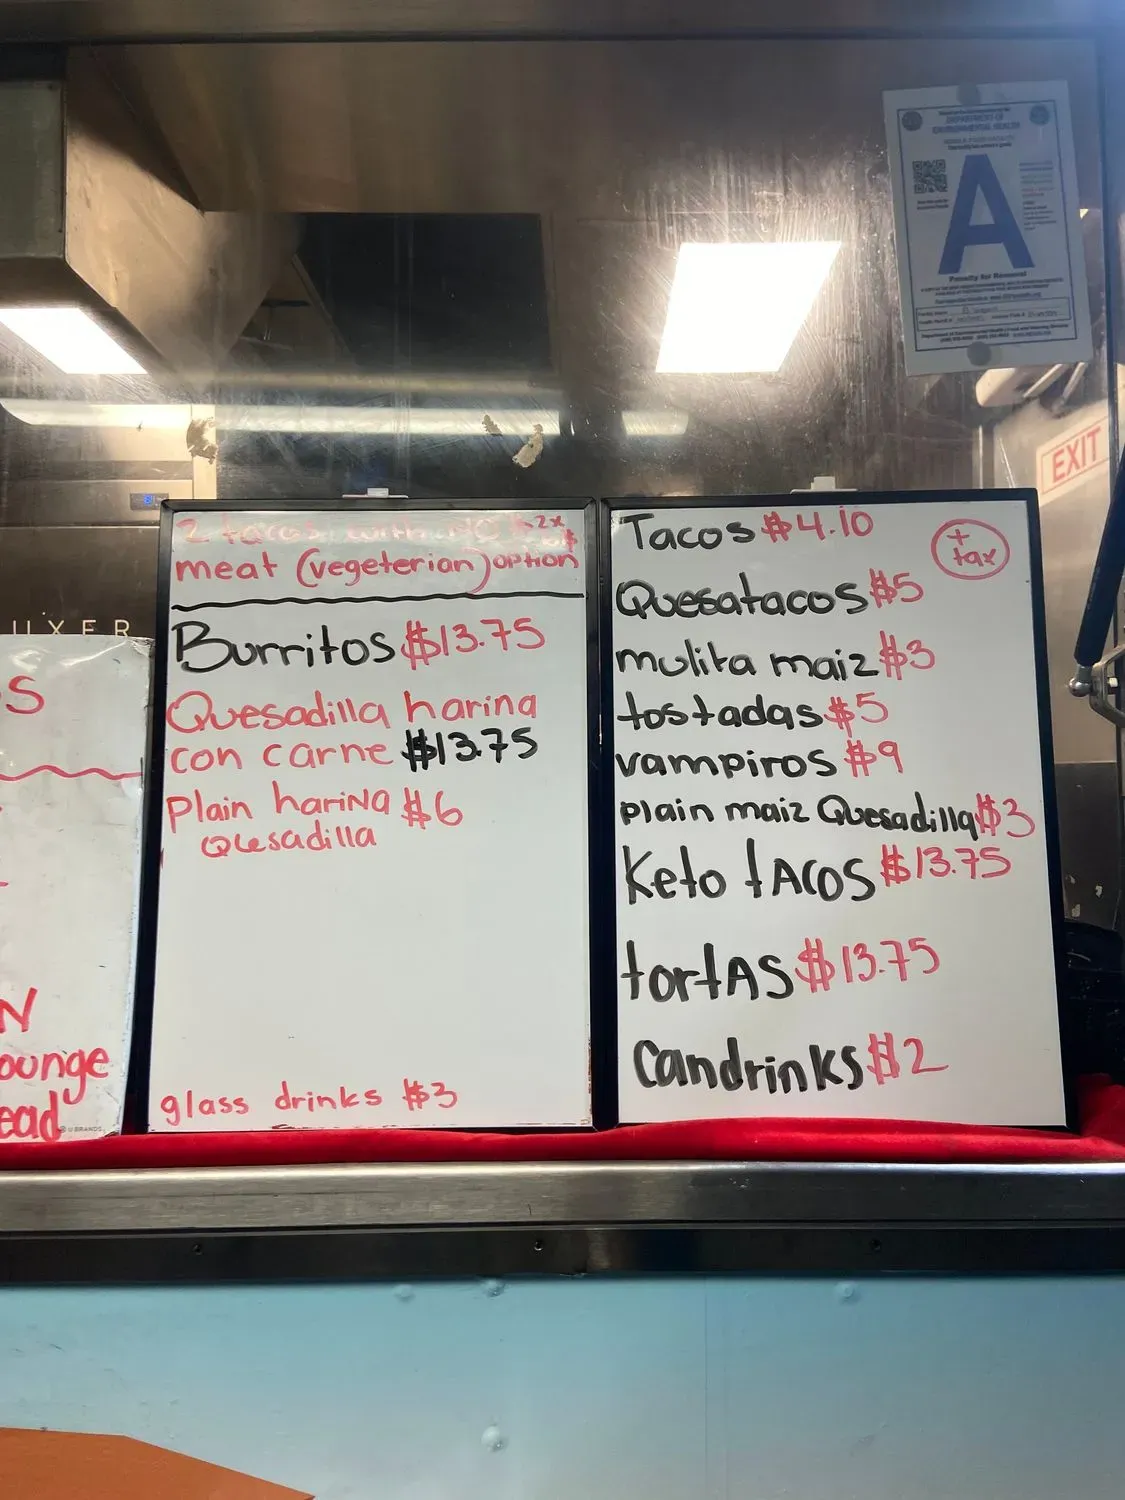 DEPARTMENT OF
ENVIRONMENTAL HEALTH
A
Penalty for Removal
EXIT
UXER
S
N
ounge
ead
U BRANDS
2 tacos with no $2x
meat (vegeterian) option
Burritos $13.75
Quesadilla harina
con carne $13.75
Plain harina $6
Quesadilla
glass drinks $3
Tacos $4.10
+
tax
Quesatacos $5
mulita maiz $3
tostadas $5
vampiros $9
plain maiz Quesadilla $3
Keto tACOS $13.75
tortAS $13.75
Candrinks $2